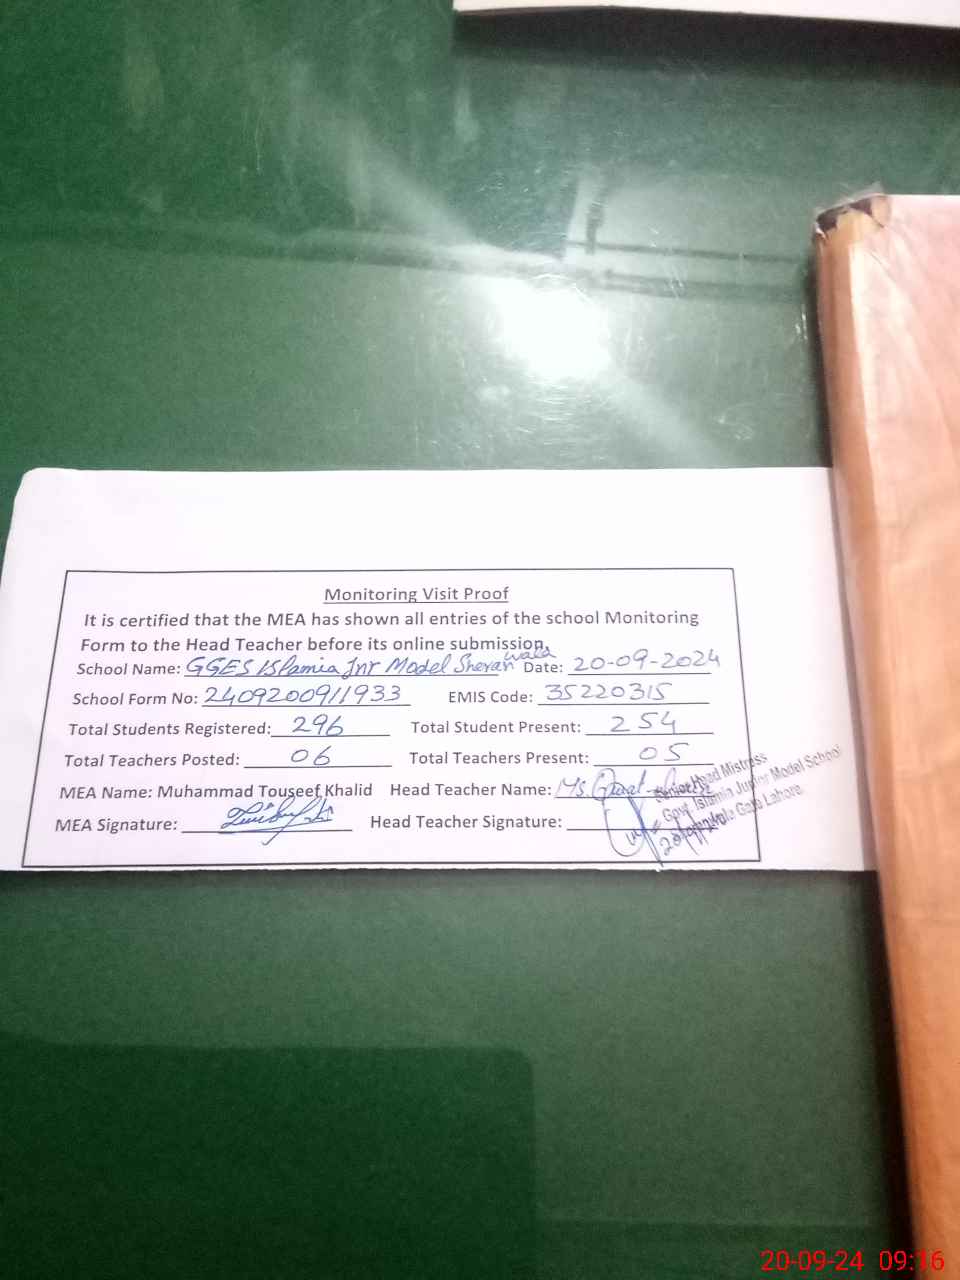 Monitoring Visit Proof
It is certified that the MEA has shown all entries of the school Monitoring
Form to the Head Teacher before its online submission.
School Name: GGES Islamia Jnr Model Sheran wala Date: 20-09-2024
School Form No: 240920091933 EMIS Code: 35220315
Total Students Registered: 296 Total Student Present: 254
Total Teachers Posted: 06 Total Teachers Present: 05
MEA Name: Muhammad Touseef Khalid Head Teacher Name: Ms.
MEA Signature: Head Teacher Signature:
Senior Head Mistress
Govt. Islamia Junior Model School
Gate Lahore.
20-09-24 09:16